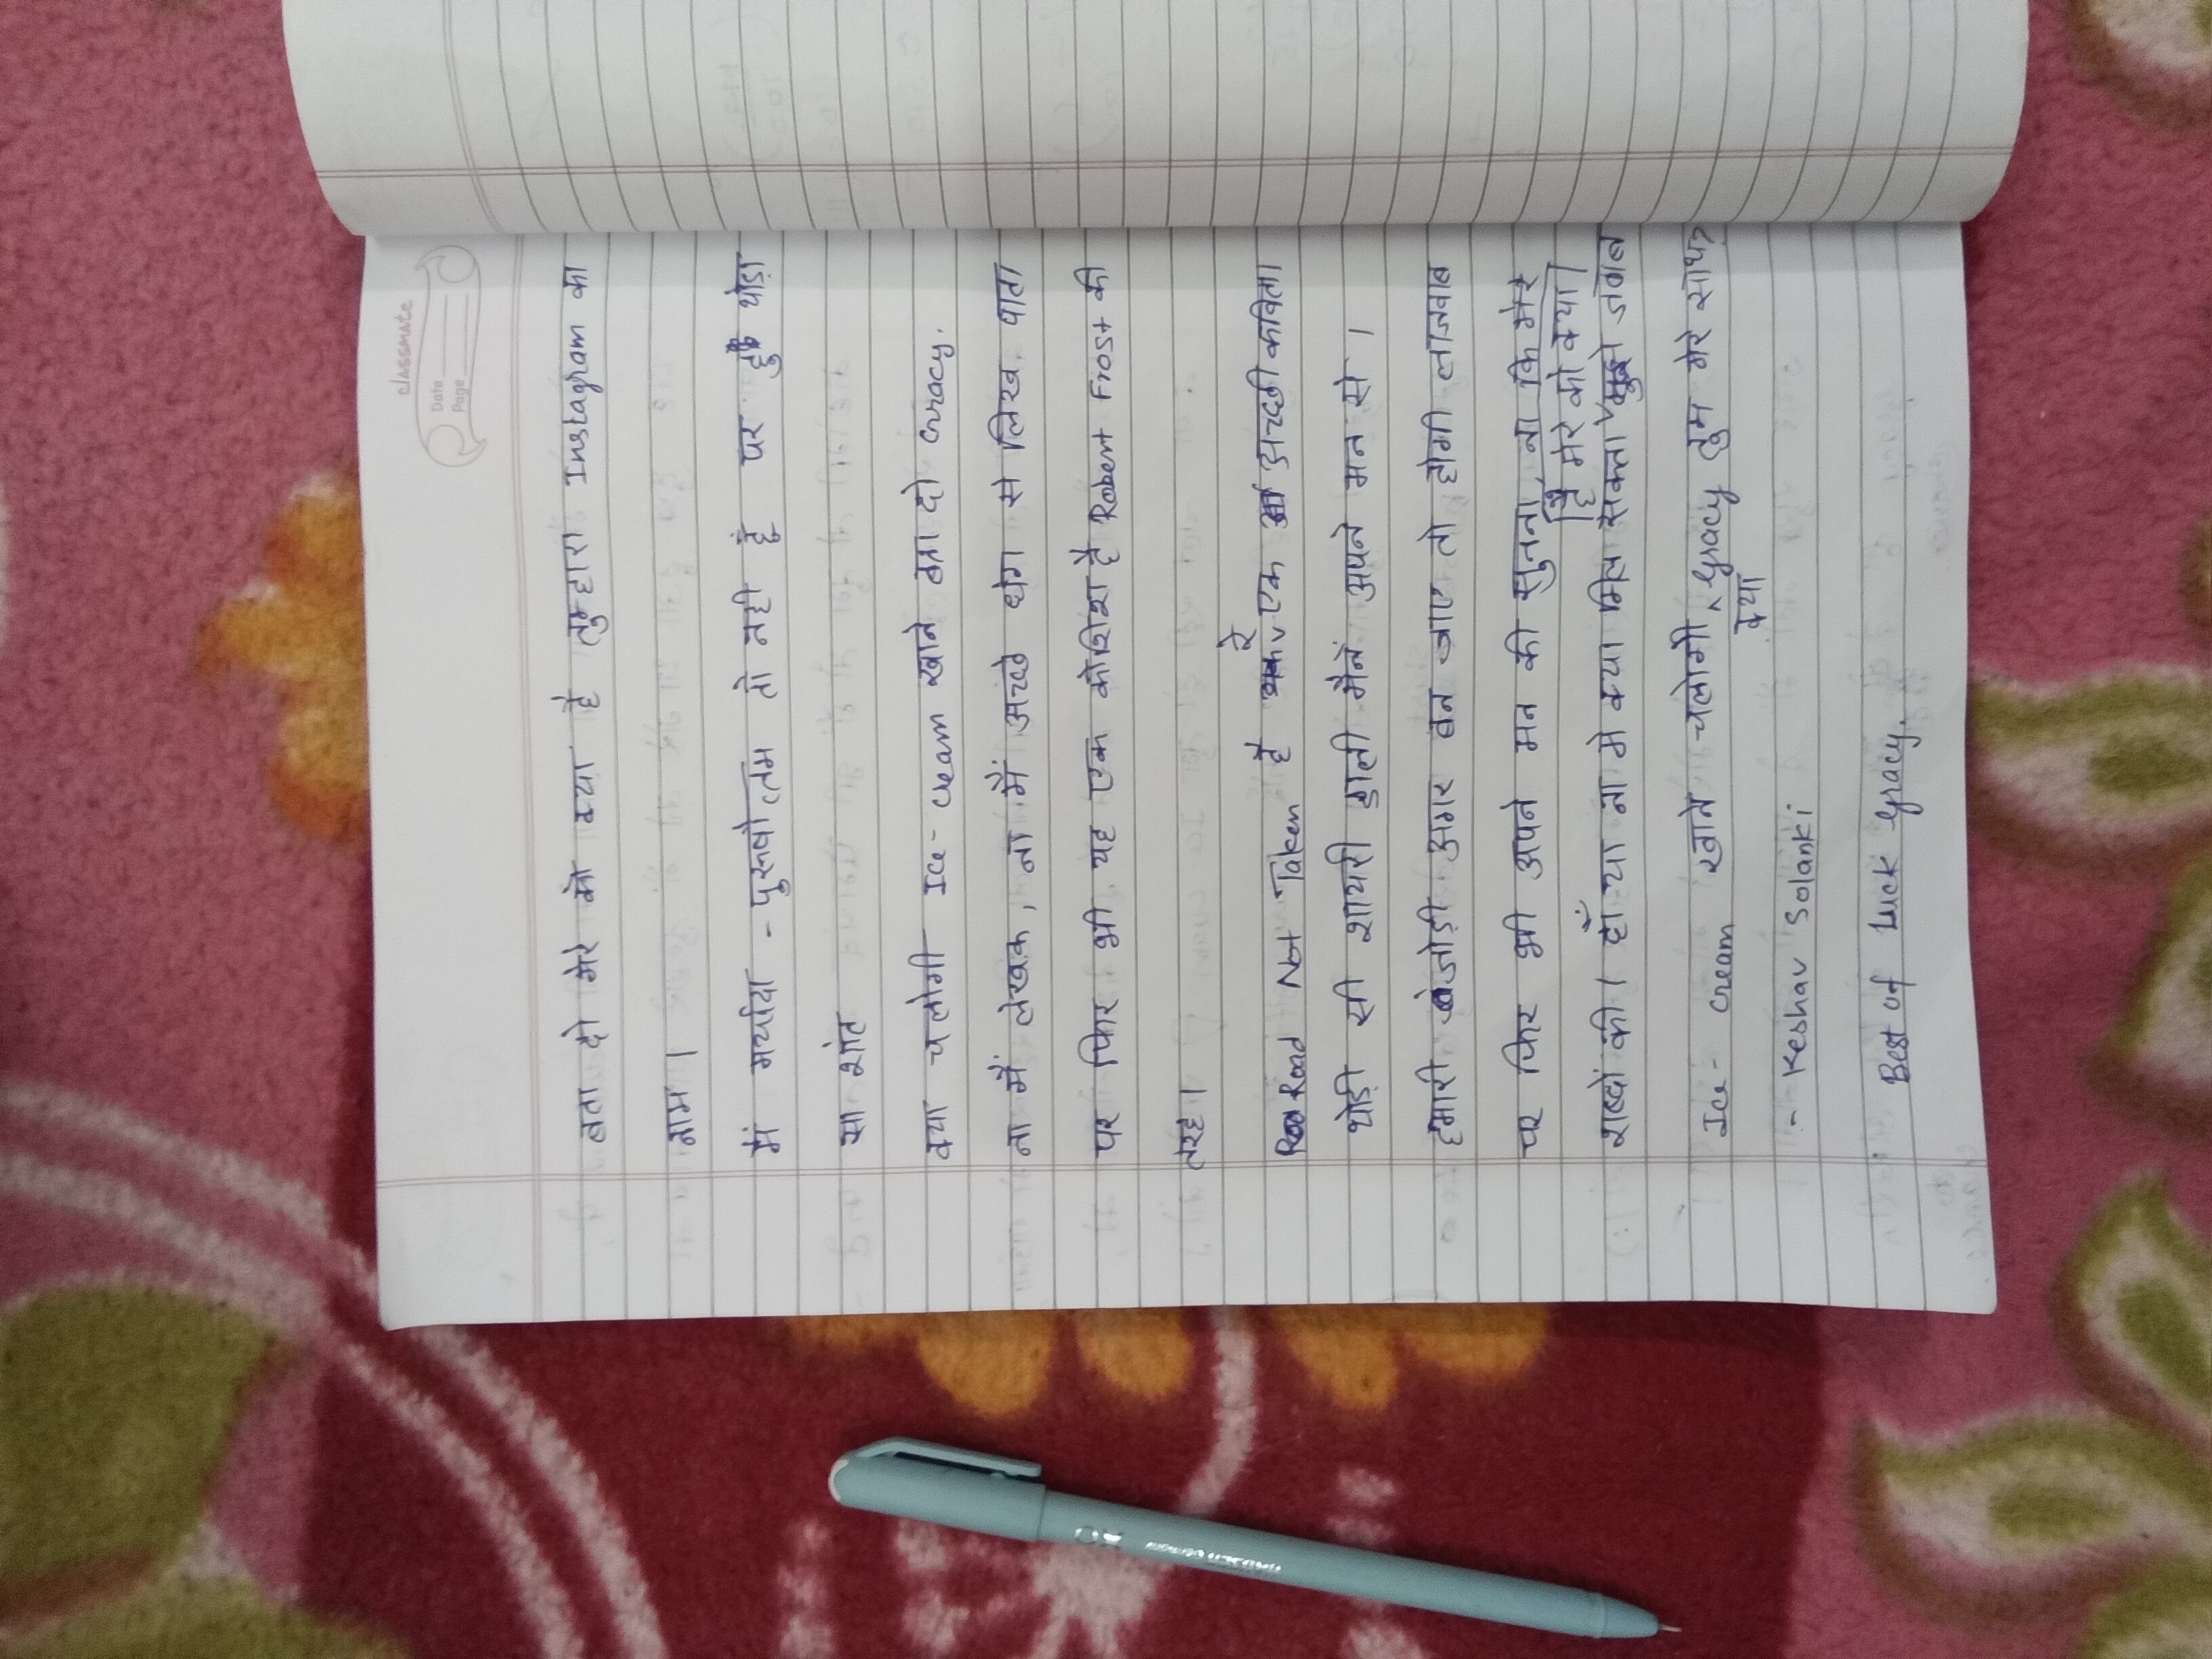 classmate
Date
Page
बता दो मेरे को क्या है तुम्हारा Instagram का
नाम ।
मैं मर्यादा - पुरूषोत्तम तो नही हूं पर हु थोड़ा
सा शांत
क्या चलोगी Ice - cream खाने बता दो Gracy.
ना मैं लेखक, ना मैं अच्छे ढंग से लिख पाता
पर फिर भी यह एक कोशिश है Robert Frost की
तरह ।
रे
Road Not Taken है एक अच्छी कविता
थोड़ी सी शायरी डाली मैनें अपने मन से ।
हमारी जोड़ी अगर बन जाए तो होगी लाजवाब
पर फिर भी अपने मन की सुनना, ना कि मेरे
है मेरे को क्या
शब्दों की । हाँ या ना मे क्या मिल सकता जवाब
Ice - cream खाने चलोगी Gracy तुम मेरे साथ?
क्या
- Keshav Solanki
Best of Luck Gracy.